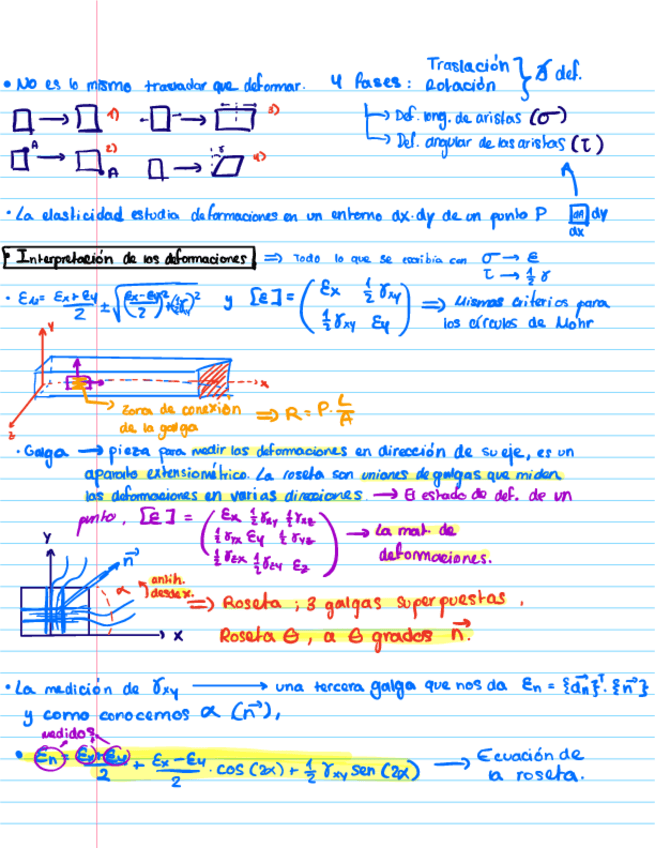 • No es lo mismo trasladar que deformar. 4 fases: Traslación
Rotación } ∄ def.
→ Def. long. de aristas (σ)
→ Def. angular de las aristas (τ)
1) 3)
A A 2) γ 4)
• La elasticidad estudia deformaciones en un entorno dx·dy de un punto P dA dy
dx
• Interpretación de las deformaciones ⇒ Todo lo que se escribia con σ → ε
τ → ½ γ
• = εx + εy / 2 ± √((εx - εy / 2)² + (½γ)²) y [ε] = ( εx ½ γxy
½ γxy εy ) ⇒ Mismos criterios para
los círculos de Mohr
y
x
z
zona de conexión
de la galga ⇒ R = ρ · L/A
• Galga → pieza para medir las deformaciones en dirección de su eje, es un
aparato extensiométrico. La roseta son uniones de galgas que miden
las deformaciones en varias direcciones. → El estado de def. de un
punto, [ε] = ( εx ½ γxy ½ γxz
½ γyx εy ½ γyz
½ γzx ½ γzy εz ) → La mat. de
deformaciones.
y n⃗ α antih.
desde x.
x
⇒ Roseta ; 3 galgas superpuestas.
Roseta θ, a θ grados n⃗.
• La medición de γxy → una tercera galga que nos da εn = {dn⃗}ᵀ · {n⃗}
y como conocemos α (n⃗),
medidos
• εn = εx + εy / 2 + εx - εy / 2 · cos (2α) + ½ γxy sen (2α) → Ecuación de
la roseta.